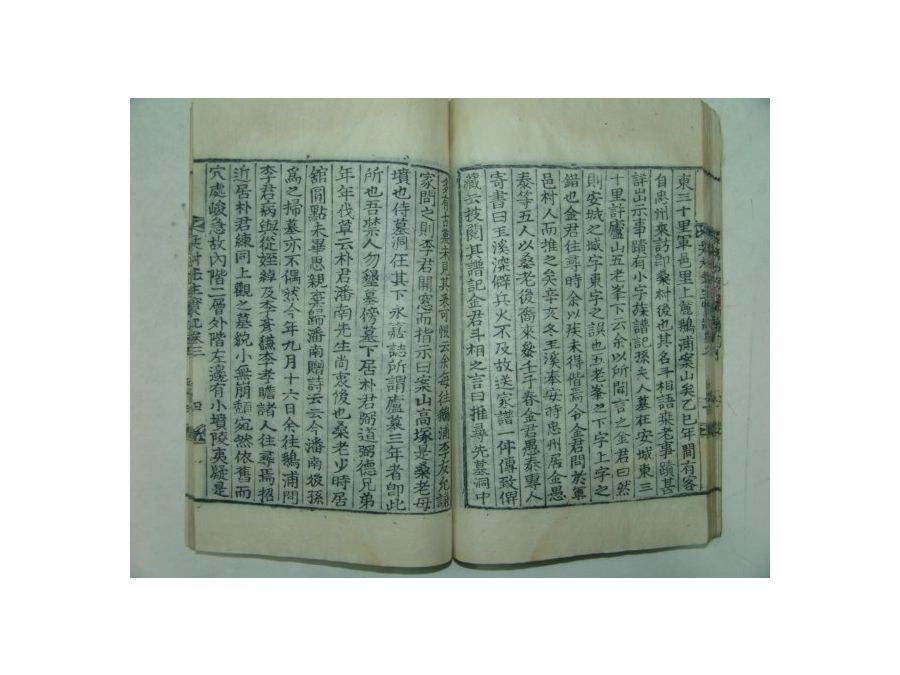 東三十里軍邑里上麓鵝浦案山矣乙巳年間有客
自忠州來訪卽桑村後也其名斗相語桑老事蹟甚
詳出示事蹟有小字族譜記孫夫人墓在安城東三
十里許廬山五老峯下云余以所聞言之金君曰然
則安城之城字東字之誤也五老峯之下字上字之
錯也金君往尋時余以疾未得偕焉令金君問於軍
邑村人而推之矣辛亥冬玉溪奉安時忠州居金愚
泰等五人以桑老後裔來參壬子春金君愚泰專人
寄書曰玉溪深僻兵火不及故送家譜一件傳致俾
藏云披閱其譜記金君斗相之言曰推尋先墓洞中
多有古墓未見其表可恨云余每往鵝浦李友允謙
家問之則李君開窓而指示曰案山高塚是桑老母
墳也侍墓洞在其下永嘉誌所謂廬墓三年者卽此
所也吾禁人勿墾墓傍墓下居朴君弼道弼德兄弟
年年伐草云朴君潘南先生尚衷後也桑老少時居
舘圈點未畢思親棄歸潘南贈詩云云今潘南後孫
爲之掃墓亦不偶然今年九月十六日余往鵝浦問
李君病與從姪綽及李膺鐮李孝瞻諸人往尋焉招
近居朴君練同上觀之墓貌小無崩頹宛然依舊而
穴處峻急故內階二層外階左邊有小墳陵夷疑是
桑村先生實記卷三
四